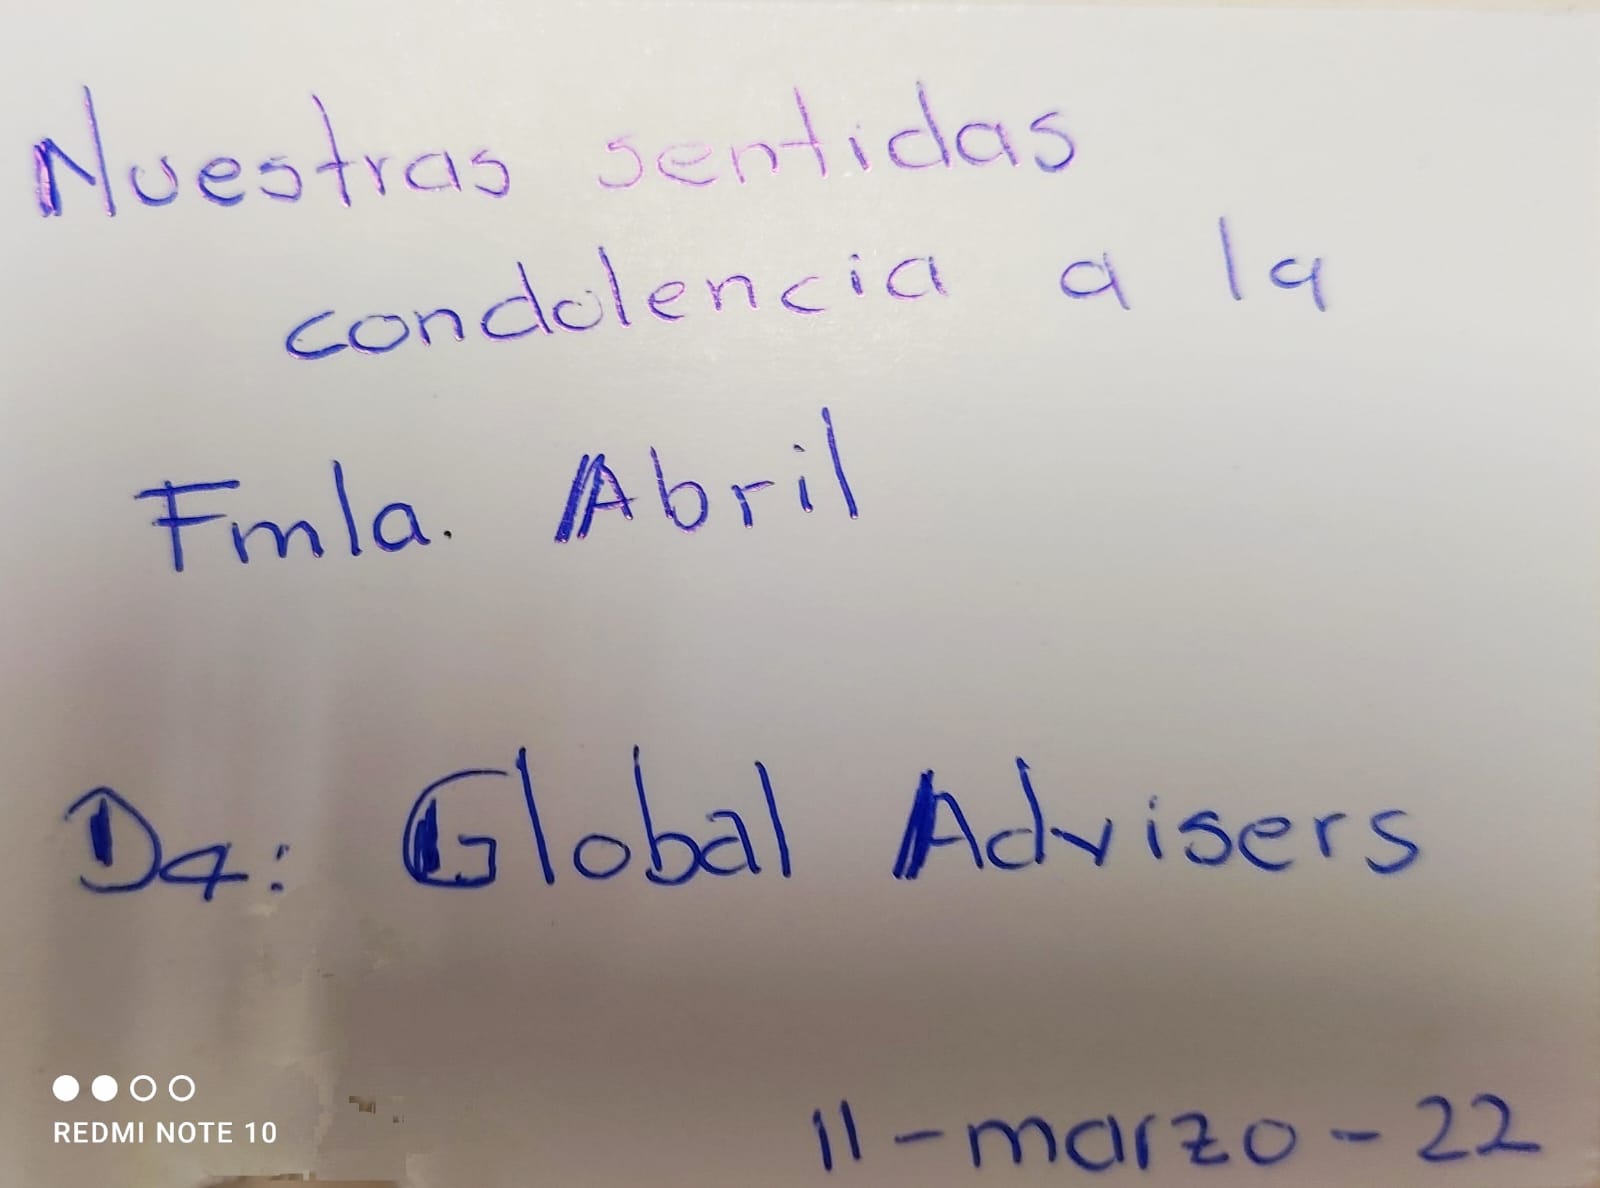 Nuestras sentidas
condolencia a la
Fmla. Abril
Da: Global Advisers
11-marzo-22
REDMI NOTE 10